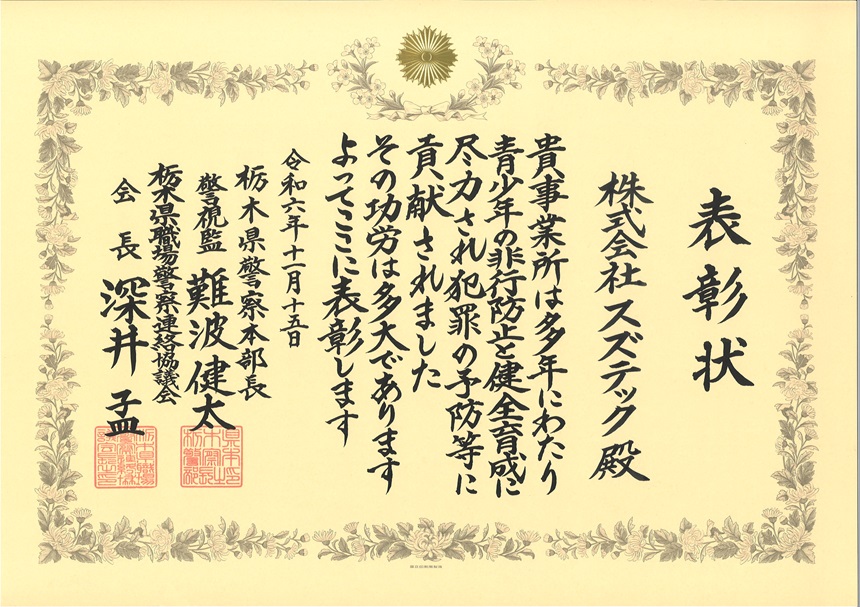 表彰状
株式会社スズテック殿
貴事業所は多年にわたり
青少年の非行防止と健全育成に
尽力され犯罪の予防等に
貢献されました
その功労は多大であります
よってここに表彰します
令和六年十一月十五日
栃木県警察本部長
警視監 難波健太
栃木県職場警察連絡協議会
会長 深井孟